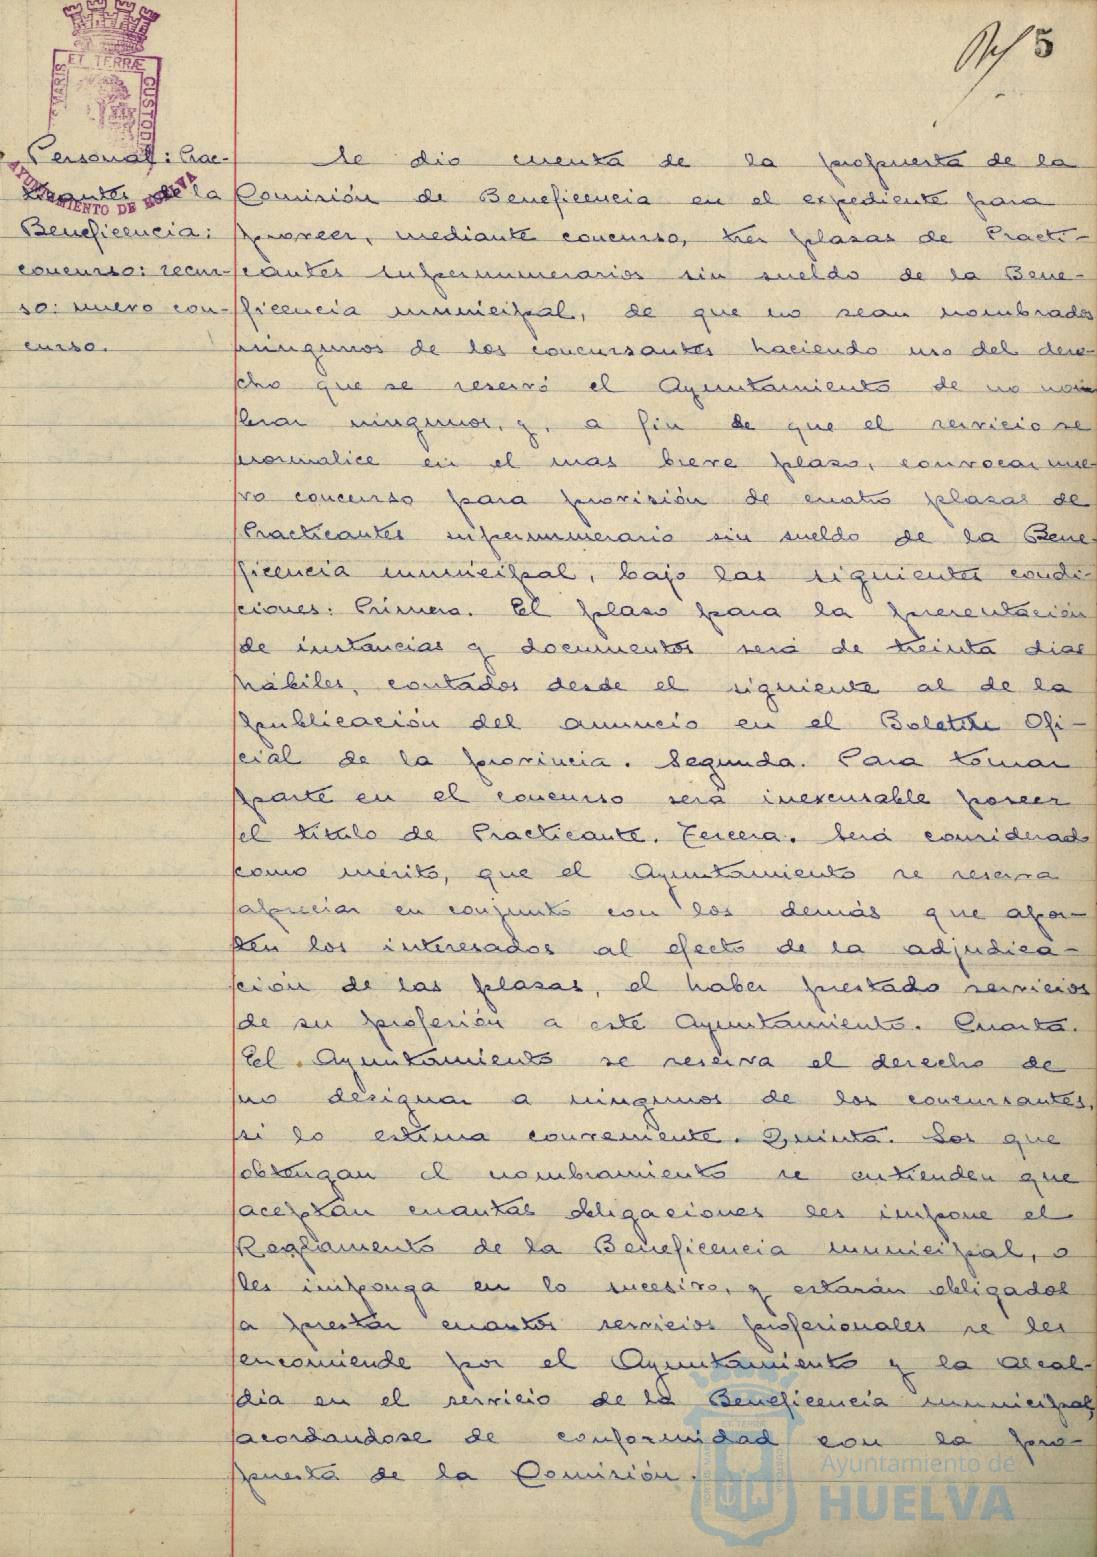 5
ET TERRÆ
MARIS
CUSTODI
AYUNTAMIENTO DE HUELVA
Personal: Prac-
ticantes de la
Beneficencia:
concurso: recur-
so: nuevo con-
curso.
Se dio cuenta de la propuesta de la
Comisión de Beneficencia en el expediente para
proveer, mediante concurso, tres plazas de Practi-
cantes supernumerarios sin sueldo de la Bene-
ficencia municipal, de que no sean nombrados
ningunos de los concursantes haciendo uso del dere-
cho que se reservó el Ayuntamiento de no nom
brar ningunos, y, a fin de que el servicio se
normalice en el mas breve plazo, convocar nue-
vo concurso para provisión de cuatro plazas de
Practicantes supernumerario sin sueldo de la Bene-
ficencia municipal, bajo las siguientes condi-
ciones: Primera. El plazo para la presentación
de instancias y documentos será de treinta dias
hábiles, contados desde el siguiente al de la
publicación del anuncio en el Boletin Ofi-
cial de la provincia. Segunda. Para tomar
parte en el concurso será inexcusable poseer
el titulo de Practicante. Tercera. Será considerado
como mérito, que el Ayuntamiento se reserva
apreciar en conjunto con los demás que apor-
ten los interesados al efecto de la adjudica-
ción de las plazas, el haber prestado servicios
de su profesión a este Ayuntamiento. Cuarta.
El Ayuntamiento se reserva el derecho de
no designar a ningunos de los concursantes,
si lo estima conveniente. Quinta. Los que
obtengan el nombramiento se entienden que
aceptan cuantas obligaciones les impone el
Reglamento de la Beneficencia municipal, o
les imponga en lo sucesivo, y estarán obligados
a prestar cuantos servicios profesionales se les
encomiende por el Ayuntamiento y la Alcal-
dia en el servicio de la Beneficencia municipal,
acordandose de conformidad con la pro-
puesta de la Comisión.
Ayuntamiento de
HUELVA